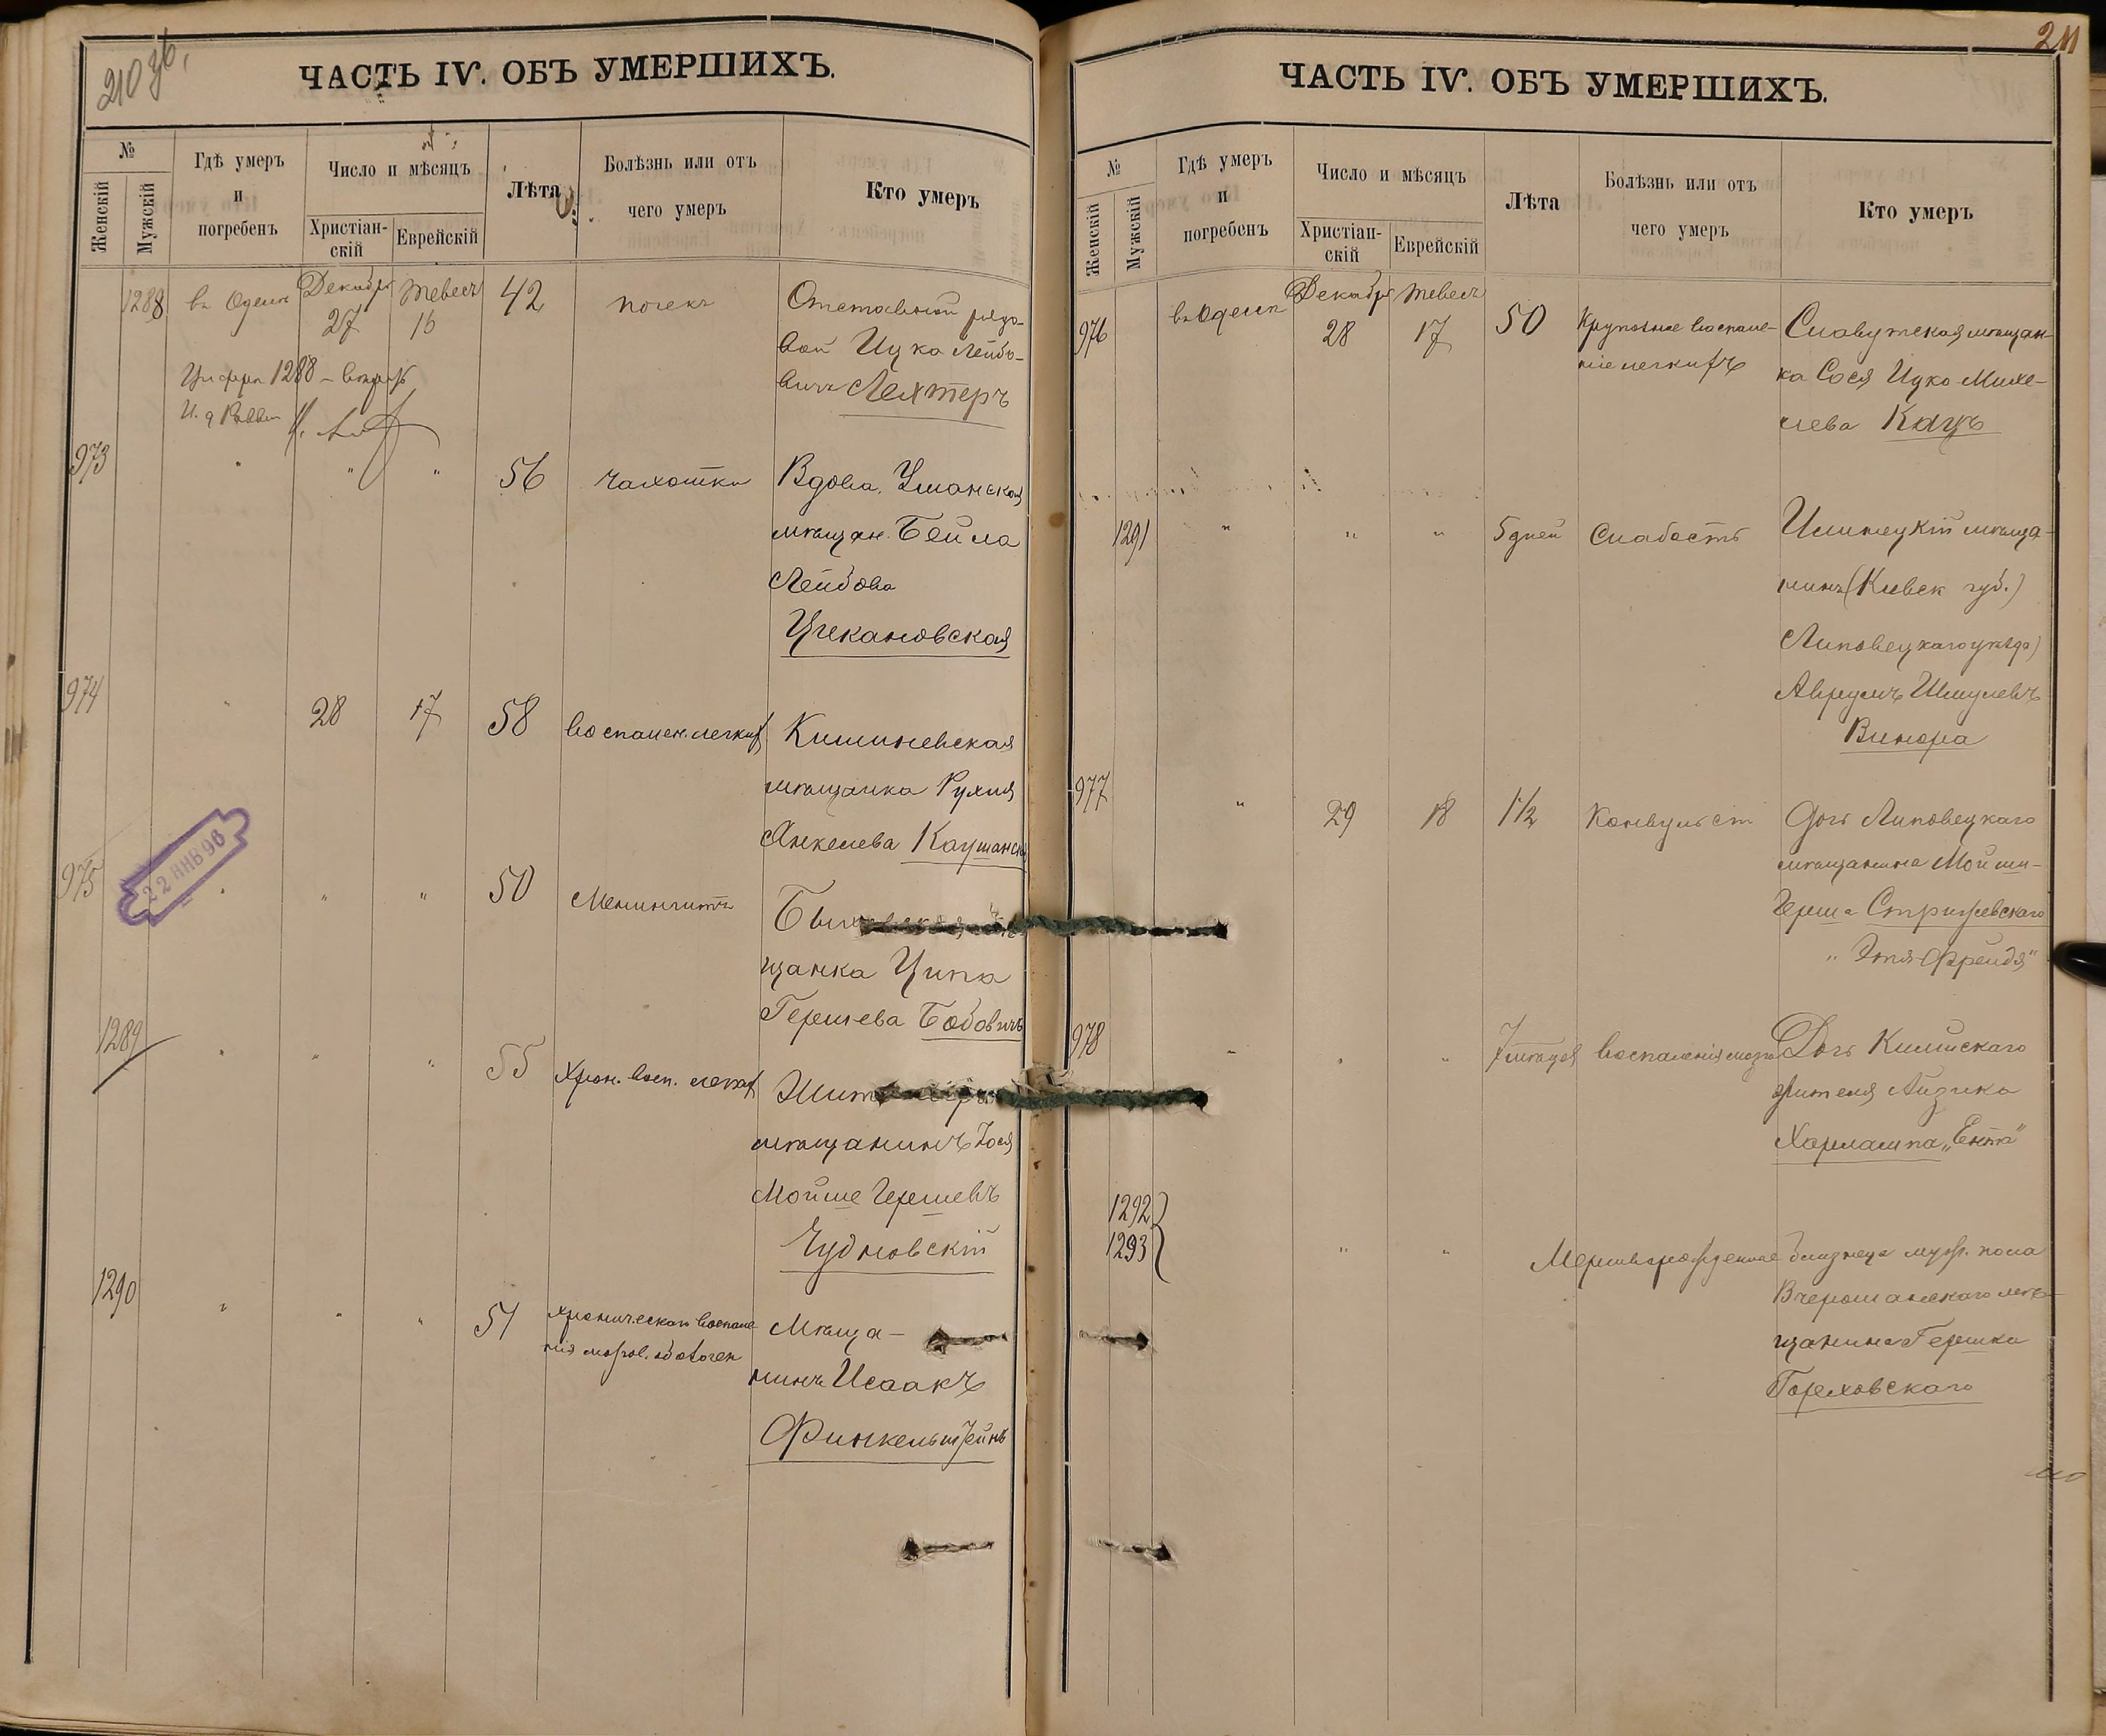 210 об.
ЧАСТЬ IV. ОБЪ УМЕРШИХЪ.
№
Женскій
Мужскій
Гдѣ умеръ
и
погребенъ
Число и мѣсяцъ
Христіан-
скій
Еврейскій
Лѣта
Болѣзнь или отъ
чего умеръ
Кто умеръ
1288 въ Одессѣ Декабря 27 Тевеса 16 42 почекъ Отставной рядо-
вой Ицка Лейбо-
вичъ Лехтеръ
Цифра 1288
И. д. Раввин
973 " " " 56 чахотка Вдова, Уманская
мѣщан. Бейла
Лейбова
Цчекановская
974 " 28 17 58 воспален. легких Кишиневская
мѣщанка Рухля
Янкелева Каушанск
22 ЯНВ 96
975 " " " 50 Менингитъ
щанка Ципа
Гершева Бабовичъ
1289 " " " 55 Хрон. восп. легких
мѣщанинъ Іося
Мойше Гершевъ
Чудновскій
1290 " " " 51 хроническаго воспале
нія мозгов. оболочек Мѣща-
нинъ Исаакъ
Финкельштейнъ
211
ЧАСТЬ IV. ОБЪ УМЕРШИХЪ.
№
Женскій
Мужскій
Гдѣ умеръ
и
погребенъ
Число и мѣсяцъ
Христіан-
скій
Еврейскій
Лѣта
Болѣзнь или отъ
чего умеръ
Кто умеръ
976 въ Одессѣ Декабря 28 Тевеса 17 50 Крупозное воспале- Славутская мѣщан-
ніе легкихъ ка Сося Ицко-Михе-
лева Кацъ
1291 " " " 5 дней Слабость Илинецкій мѣща-
нинъ (Киевск губ.)
Липовецкаго уѣзда)
Аврумъ Шмулевъ
Винора
977 " 29 18 1½ Конвульст Дочь Липовецкаго
мѣщанина Мойши-
Герша Стрижевскаго
"Этя-Фрейдя"
978 " " " 7 мѣсяцев воспаленія мозга Дочь Килійскаго
жителя Айзика
Харлампа "Ента"
1292
1293 " " Мертворожденные близнеца муж. пола
Вчерошанскаго мѣ-
щанина Гершка
Гореховскаго